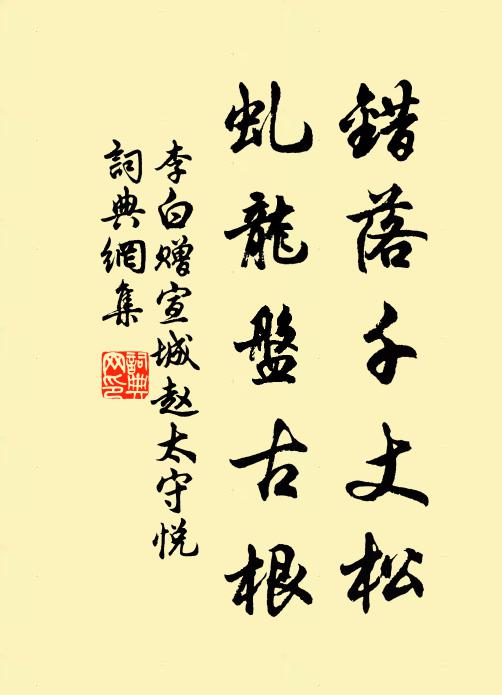 錯落千丈松
虬龍盤古根
李白赠宣城赵太守悦
詞典網集
詞典网印